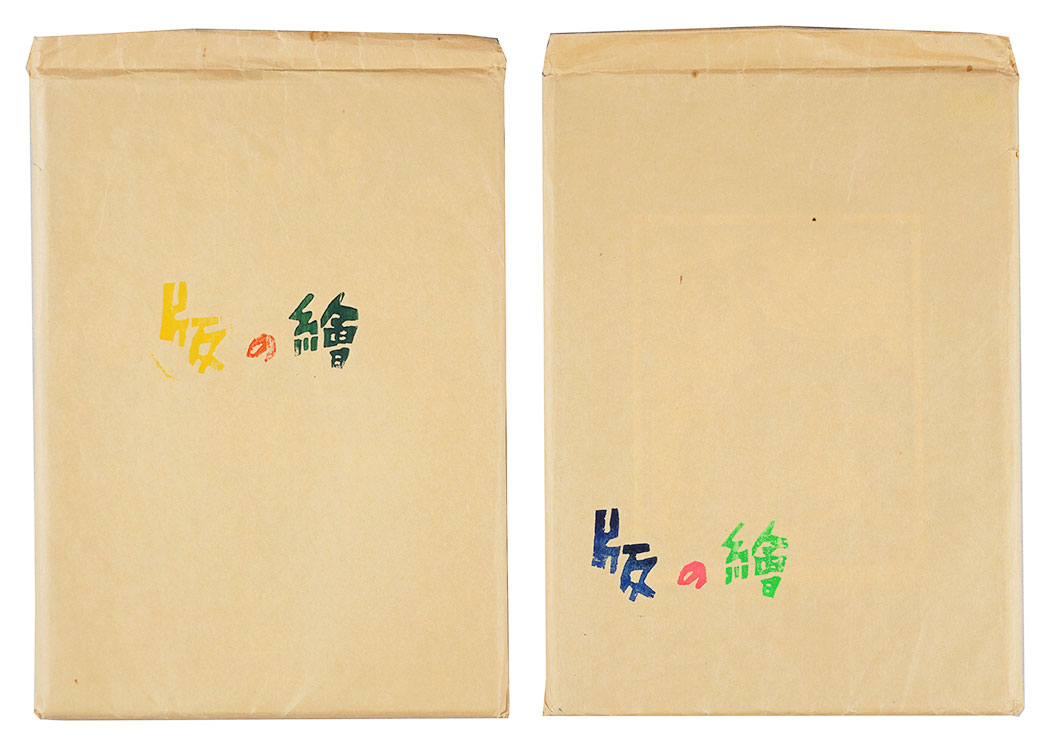 版の繪
版の繪